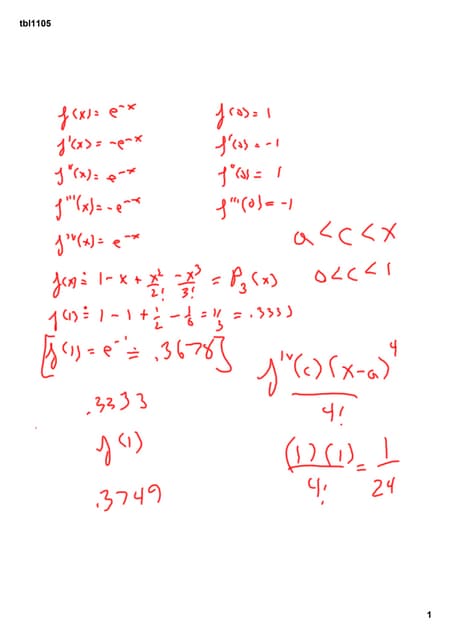 tbl1105
f(x) = e^-x f(0) = 1
f'(x) = -e^-x f'(0) = -1
f''(x) = e^-x f''(0) = 1
f'''(x) = -e^-x f'''(0) = -1
f^IV(x) = e^-x
a < c < x
f(x) ≐ 1 - x + x^2/2! - x^3/3! = P_3(x)
0 < c < 1
f(1) ≐ 1 - 1 + 1/2 - 1/6 = 1/3 = .3333
[f(1) = e^-1 ≐ .3678]
f^IV(c)(x-a)^4/4!
.3333
f(1)
(1)(1)/4! = 1/24
.3749
1